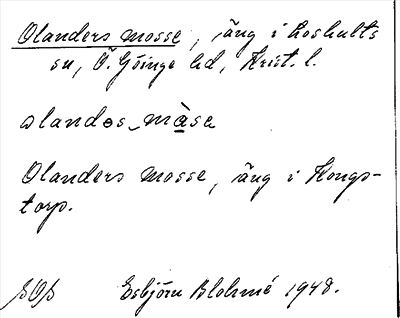 Olanders mosse, äng i Loshults
sn, Ö. Göinge hd, Krist. l.
olandəs mɑ̀sə
Olanders mosse, äng i Kongs-
torp.
Esbjörn Blohmé 1948.